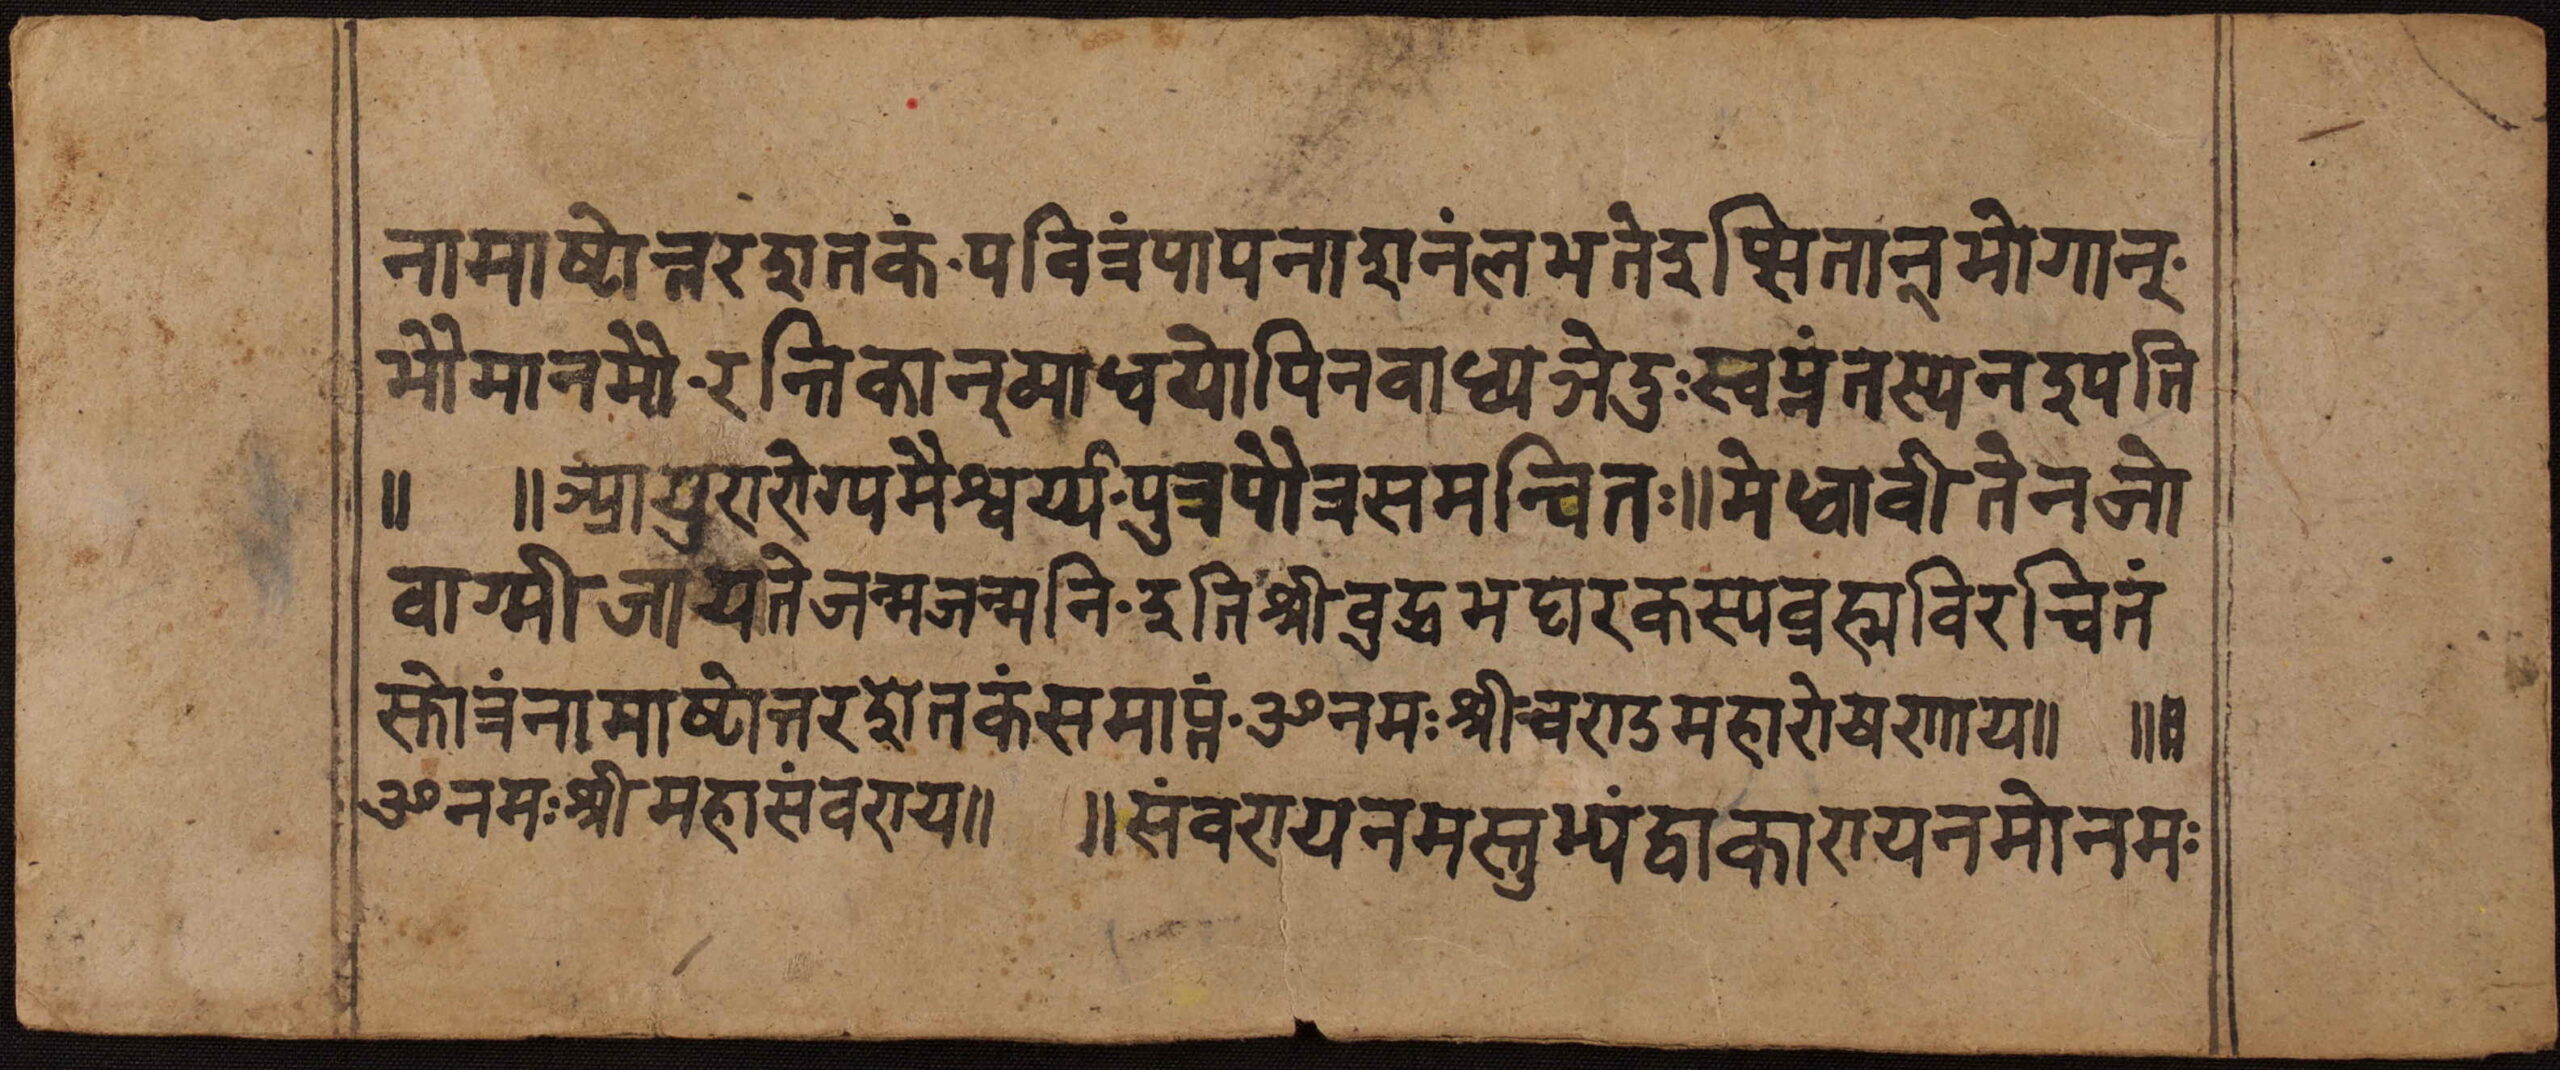 नामाष्टोत्तरशतकं·पवित्रंपापनाशनंलभतेइप्सितान्भोगान्·
भौमानमौ·रन्तिकान्माध्वयोपिनवाध्यन्तेदुःस्वप्नंतस्यनश्यति
॥ ॥आयुरारोग्यमैश्वर्य्य·पुत्रपौत्रसमन्वितः॥मेधावीतेनजो
वाग्मीजायतेजन्मजन्मनि·इतिश्रीबुद्धभट्टारकस्यब्रह्मविरचितं
स्तोत्रंनामाष्टोत्तरशतकंसमाप्तं·ॐनमःश्रीचराडमहारोषणाय॥ ॥
ॐनमःश्रीमहासंवराय॥ ॥संवरायनमस्तुभ्यंद्वाकारायनमोनमः